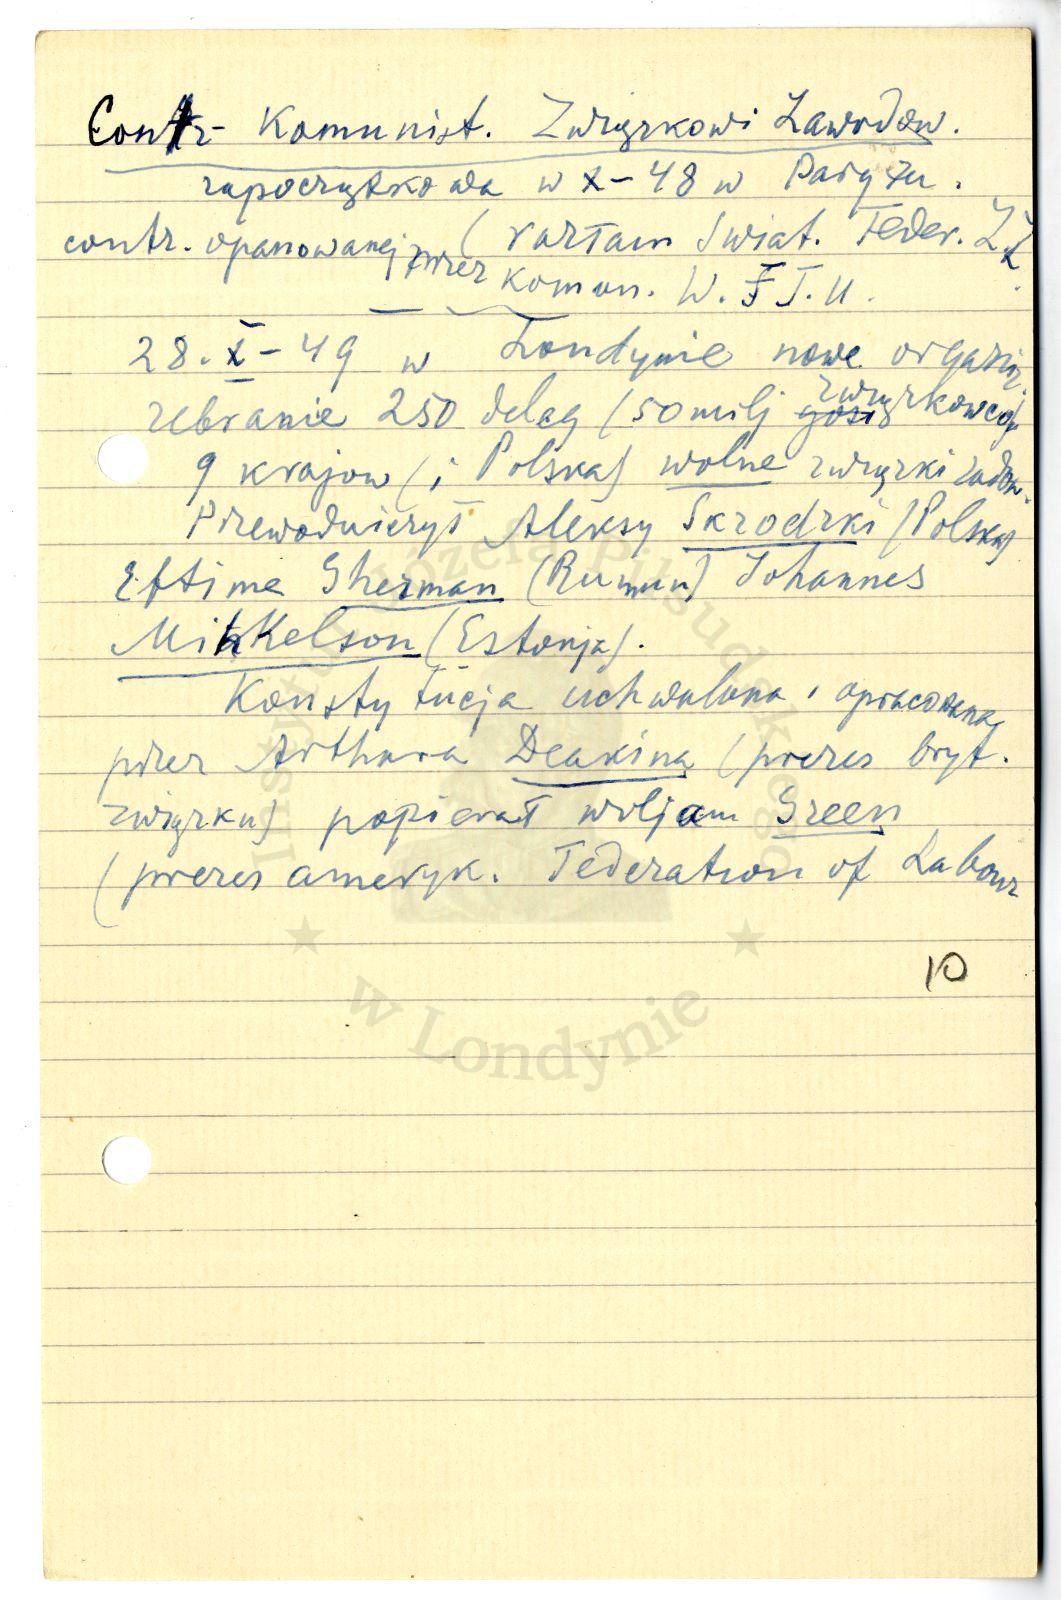 Contr- Komunist. Związkowi Zawodow.
zapoczątkowa w X-48 w Paryżu.
contr. opanowanej przez (Świat. Feder. ZZ
komun. W. F T. U.
28. X - 49 w Londynie nowe organiz.
zebranie 250 deleg (50 milj związkowców
9 krajow (i Polska) wolne związki zadow.
Przewodniczył Aleksy Skrodzki (Polska)
Eftime Gherman (Rumun) Johannes
Mihkelson (Estonja).
Konstytucja uchwalona i opracowana
przez Arthura Deakina (prezes bryt.
związku) popierał wiljam Green
(prezes ameryk. Federation of Labour
10
Instytut Józefa Piłsudskiego
w Londynie